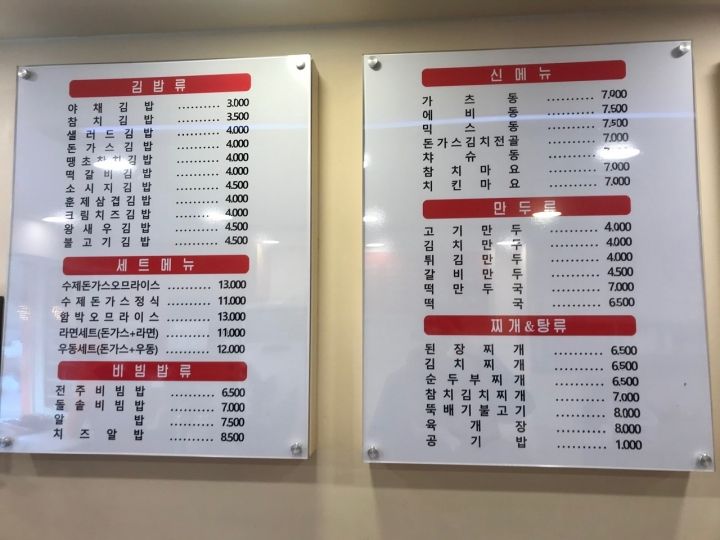 김밥류
야채김밥 .......... 3.000
참치김밥 .......... 3.500
샐러드김밥 .......... 4.000
돈가스김밥 .......... 4.000
땡초참치김밥 .......... 4.000
떡갈비김밥 .......... 4.000
소시지김밥 .......... 4.500
훈제삼겹김밥 .......... 4.000
크림치즈김밥 .......... 4.000
왕새우김밥 .......... 4.500
불고기김밥 .......... 4.500
세트메뉴
수제돈가스오므라이스 .......... 13.000
수제돈가스정식 .......... 11.000
함박오므라이스 .......... 13.000
라면세트(돈가스+라면) .......... 11.000
우동세트(돈가스+우동) .......... 12.000
비빔밥류
전주비빔밥 .......... 6.500
돌솥비빔밥 .......... 7.000
알밥 .......... 7.500
치즈알밥 .......... 8.500
신메뉴
가츠동 .......... 7.000
에비동 .......... 7.500
믹스동 .......... 7.500
돈가스김치전골 .......... 7.000
챠슈동 ..........
참치마요 .......... 7.000
치킨마요 .......... 7.000
만두류
고기만두 .......... 4.000
김치만두 .......... 4.000
튀김만두 .......... 4.000
갈비만두 .......... 4.500
떡만두국 .......... 7.000
떡국 .......... 6.500
찌개&탕류
된장찌개 .......... 6.500
김치찌개 .......... 6.500
순두부찌개 .......... 6.500
참치김치찌개 .......... 7.000
뚝배기불고기 .......... 8.000
육개장 .......... 8.000
공기밥 .......... 1.000